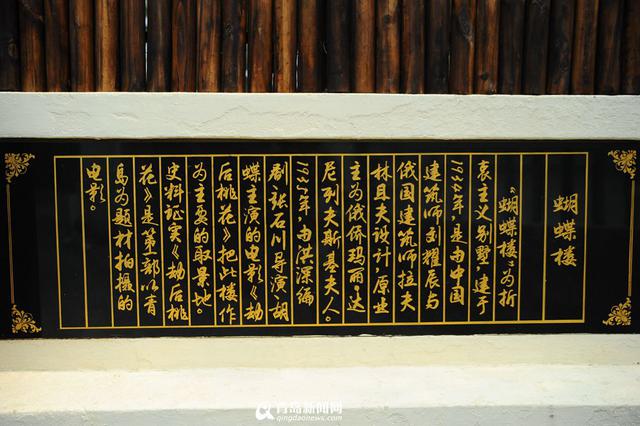 蝴蝶楼
“蝴蝶楼”为折
衷主义别墅，建于
1934年，是由中国
建筑师刘耀宸与
俄国建筑师拉夫
林且夫设计，原业
主为俄侨玛丽·达
尼列夫斯基夫人。
1935年，由洪深编
剧、张石川导演、胡
蝶主演的电影《劫
后桃花》把此楼作
为主要的取景地。
史料证实《劫后桃
花》是第一部以青
岛为题材拍摄的
电影。
青岛新闻网
qingdaonews.com